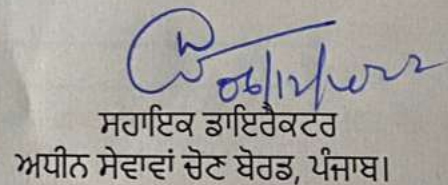 06/12/2022
ਸਹਾਇਕ ਡਾਇਰੈਕਟਰ
ਅਧੀਨ ਸੇਵਾਵਾਂ ਚੋਣ ਬੋਰਡ, ਪੰਜਾਬ।